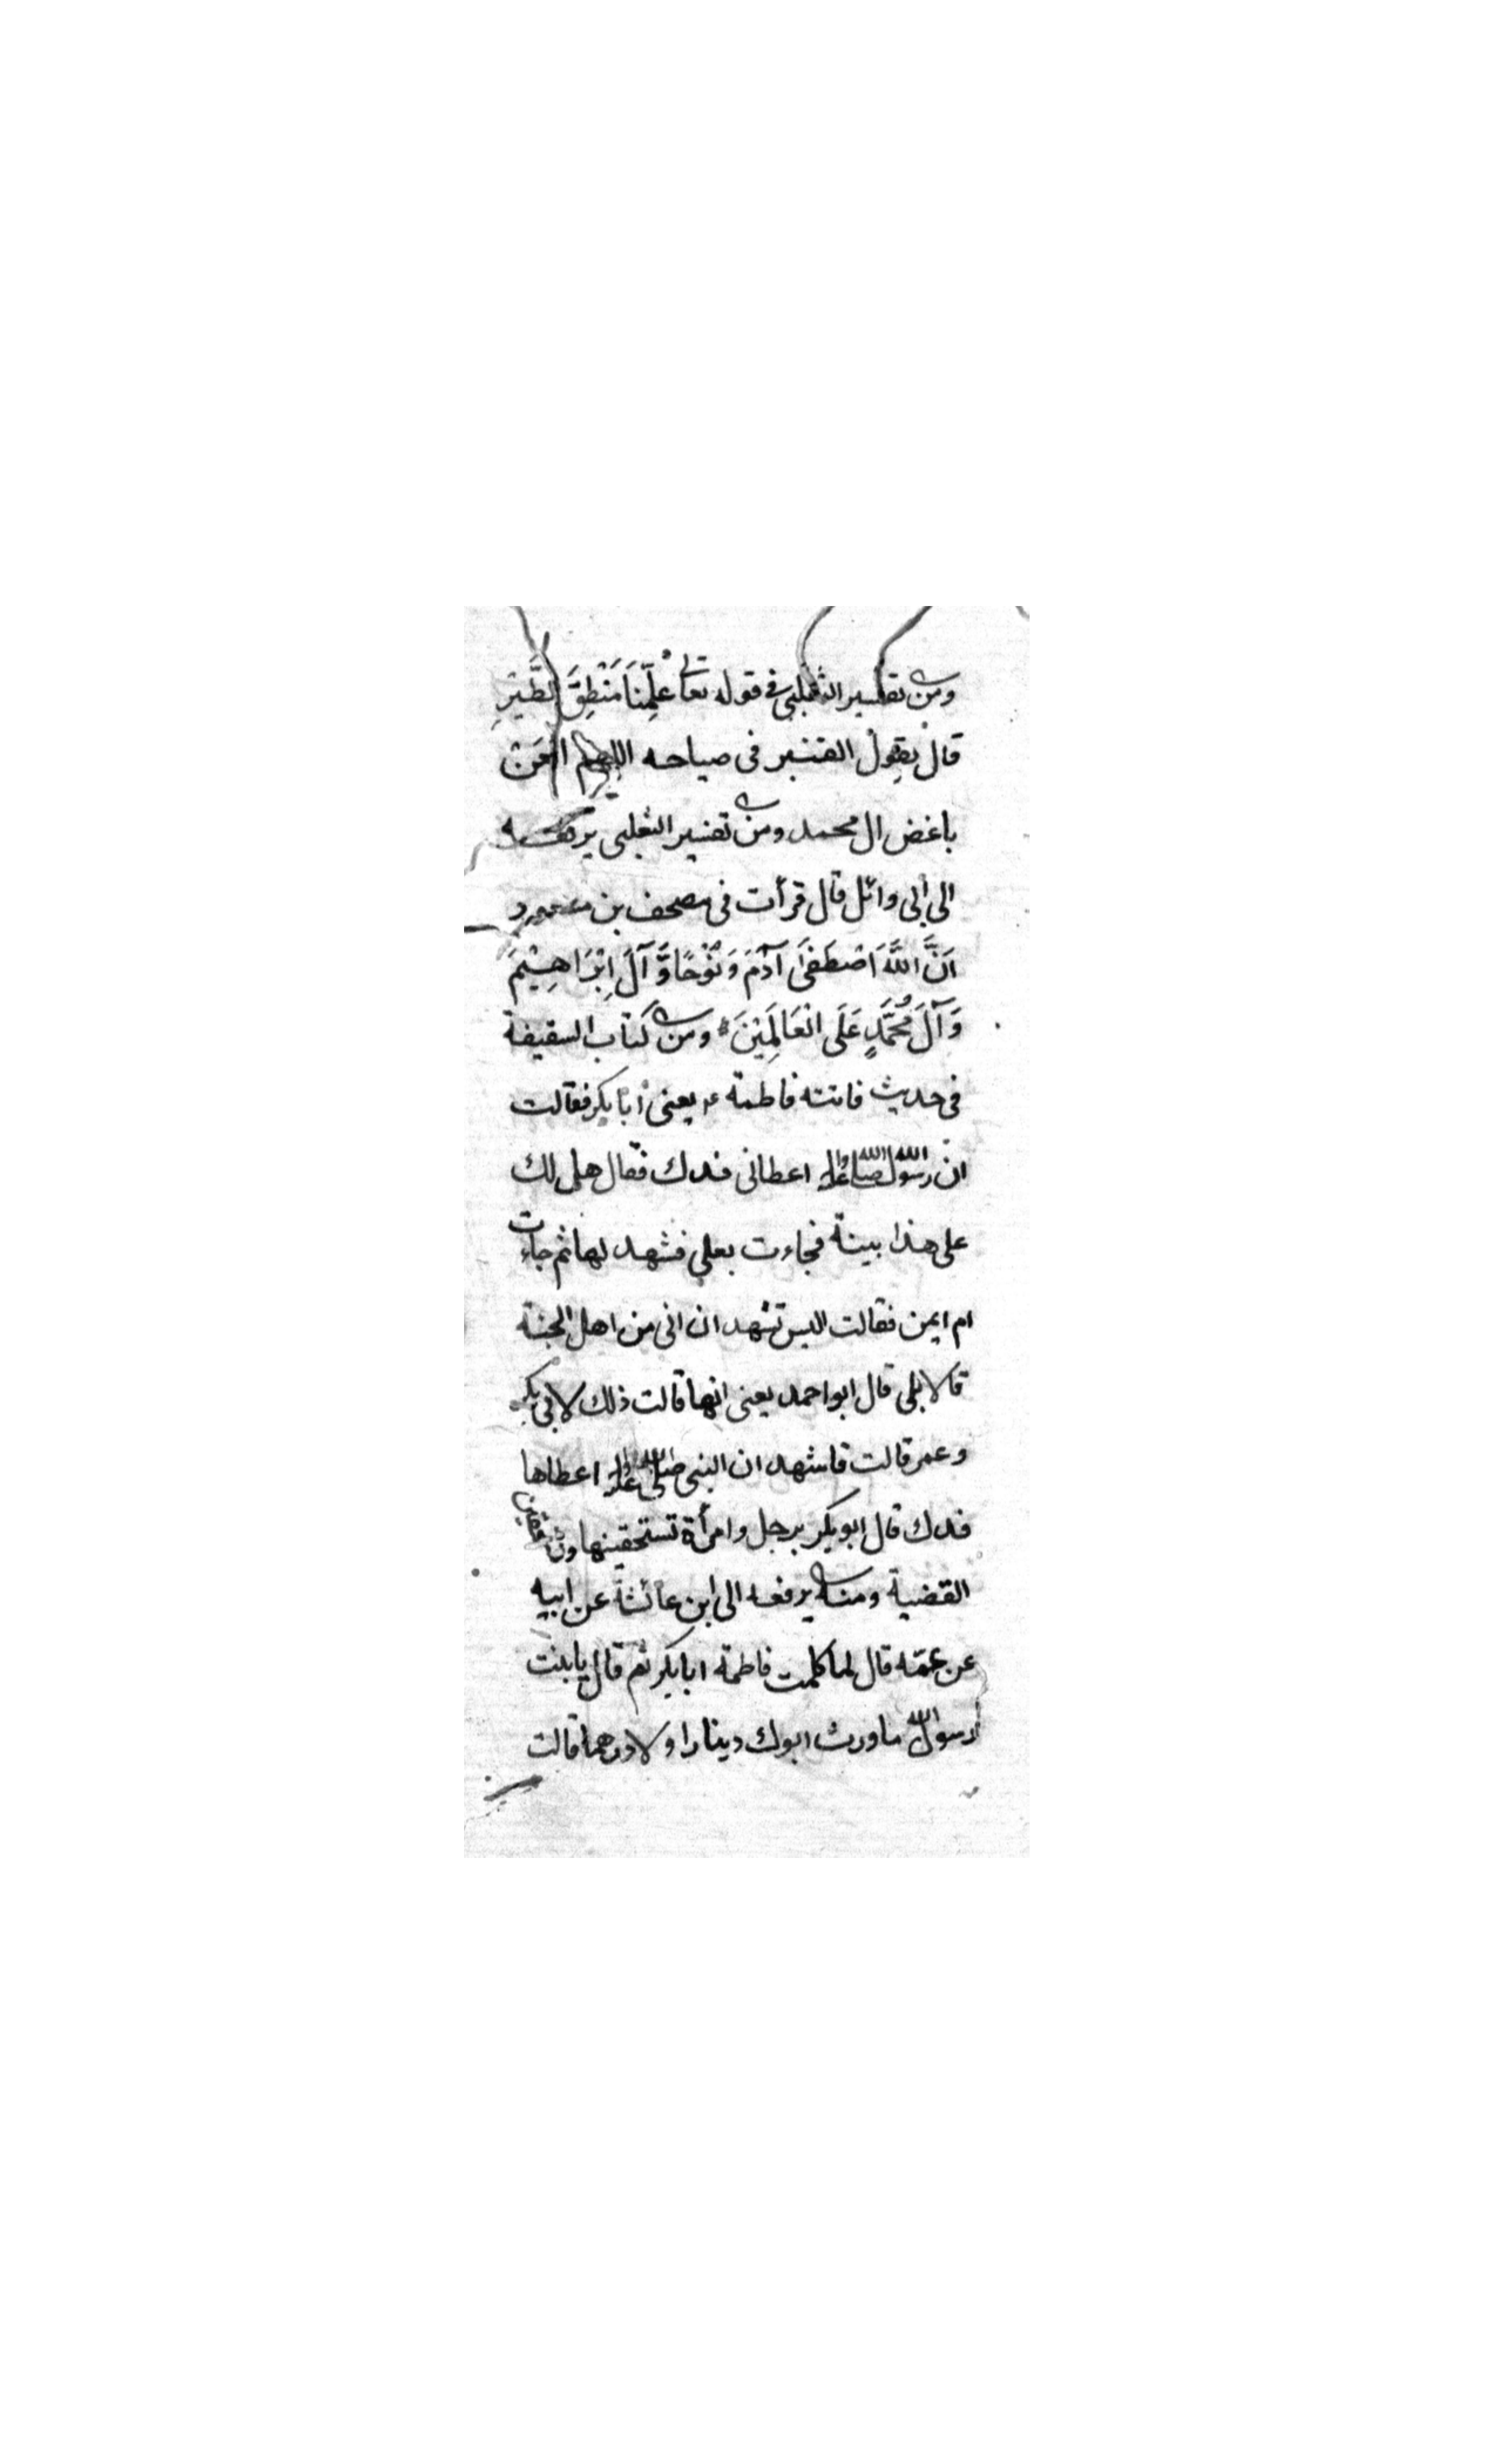 ومن تفسير الثعلبى فى قوله تعالى عُلِّمْنَا مَنْطِقَ الطَّيْرِ
قال يقول القنبر فى صياحه اللهم العن
باغض ال محمد ومن تفسير الثعلبى يرفعه
الى ابى وائل قال قرأت فى مصحف بن مسعود
اَنَّ اللَّهَ اصْطَفَى آدَمَ وَنُوْحًا وَّآلَ اِبْرَاهِيْمَ
وَآلَ مُحَمَّدٍ عَلَى الْعَالَمِيْنَ ومن كتاب السقيفة
فى حديث فاتته فاطمة ع يعنى ابا بكر فقالت
ان رسول الله صلى الله عليه واله اعطانى فدك فقال هل لك
على هذا بينة فجاءت بعلى فشهد لها ثم جاءت
ام ايمن فقالت اليس تشهد ان انى من اهل الجنة
قالا بلى قال ابو احمد يعنى انها قالت ذلك لابى بكر
وعمر قالت فاشهد ان النبى صلى الله عليه واله اعطاها
فدك قال ابو بكر برجل وامرأة تستحقينها
القضية ومنه يرفعه الى ابن عائشة عن ابيه
عن عمه قال لما كلمت فاطمة ابا بكر ثم قال يا بنت
رسول الله ما ورث ابوك دينارا ولا درهما قالت